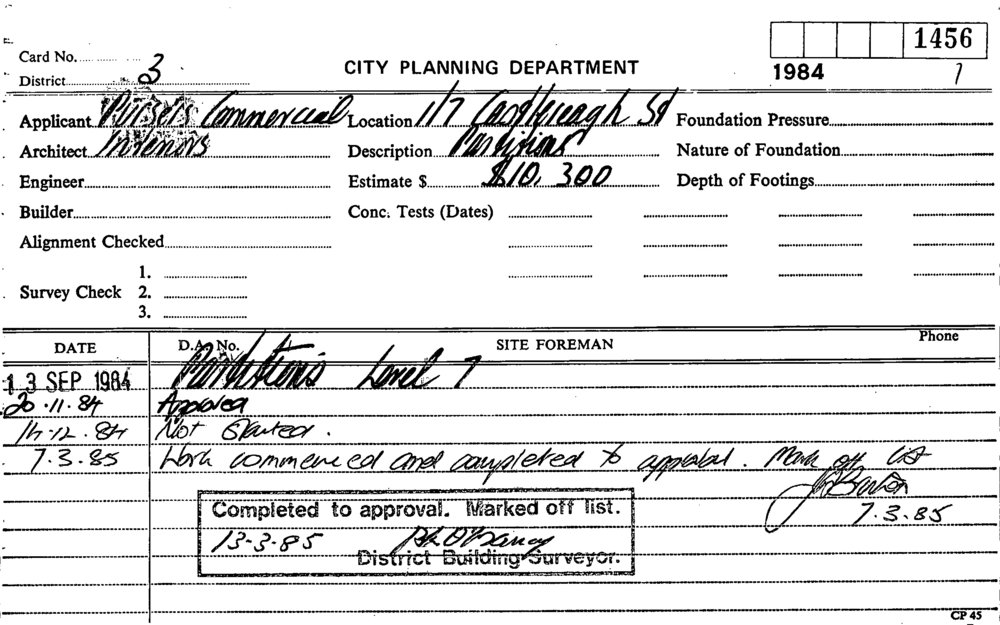 1456
Card No.
District 3
CITY PLANNING DEPARTMENT
1984
Applicant Commercial
Location 1/7 Castlereagh St
Foundation Pressure
Architect Interiors
Description Partitions
Nature of Foundation
Engineer
Estimate $ $10,300
Depth of Footings
Builder
Conc. Tests (Dates)
Alignment Checked
1.
Survey Check 2.
3.
DATE D.A. No. SITE FOREMAN Phone
13 SEP 1984 Partitions Level 7
20.11.84 Approved
14.12.84 Not Started.
7.3.85 Work commenced and completed to approval. Mark off list
7.3.85
Completed to approval. Marked off list.
13-3-85
District Building Surveyor.
CP 45